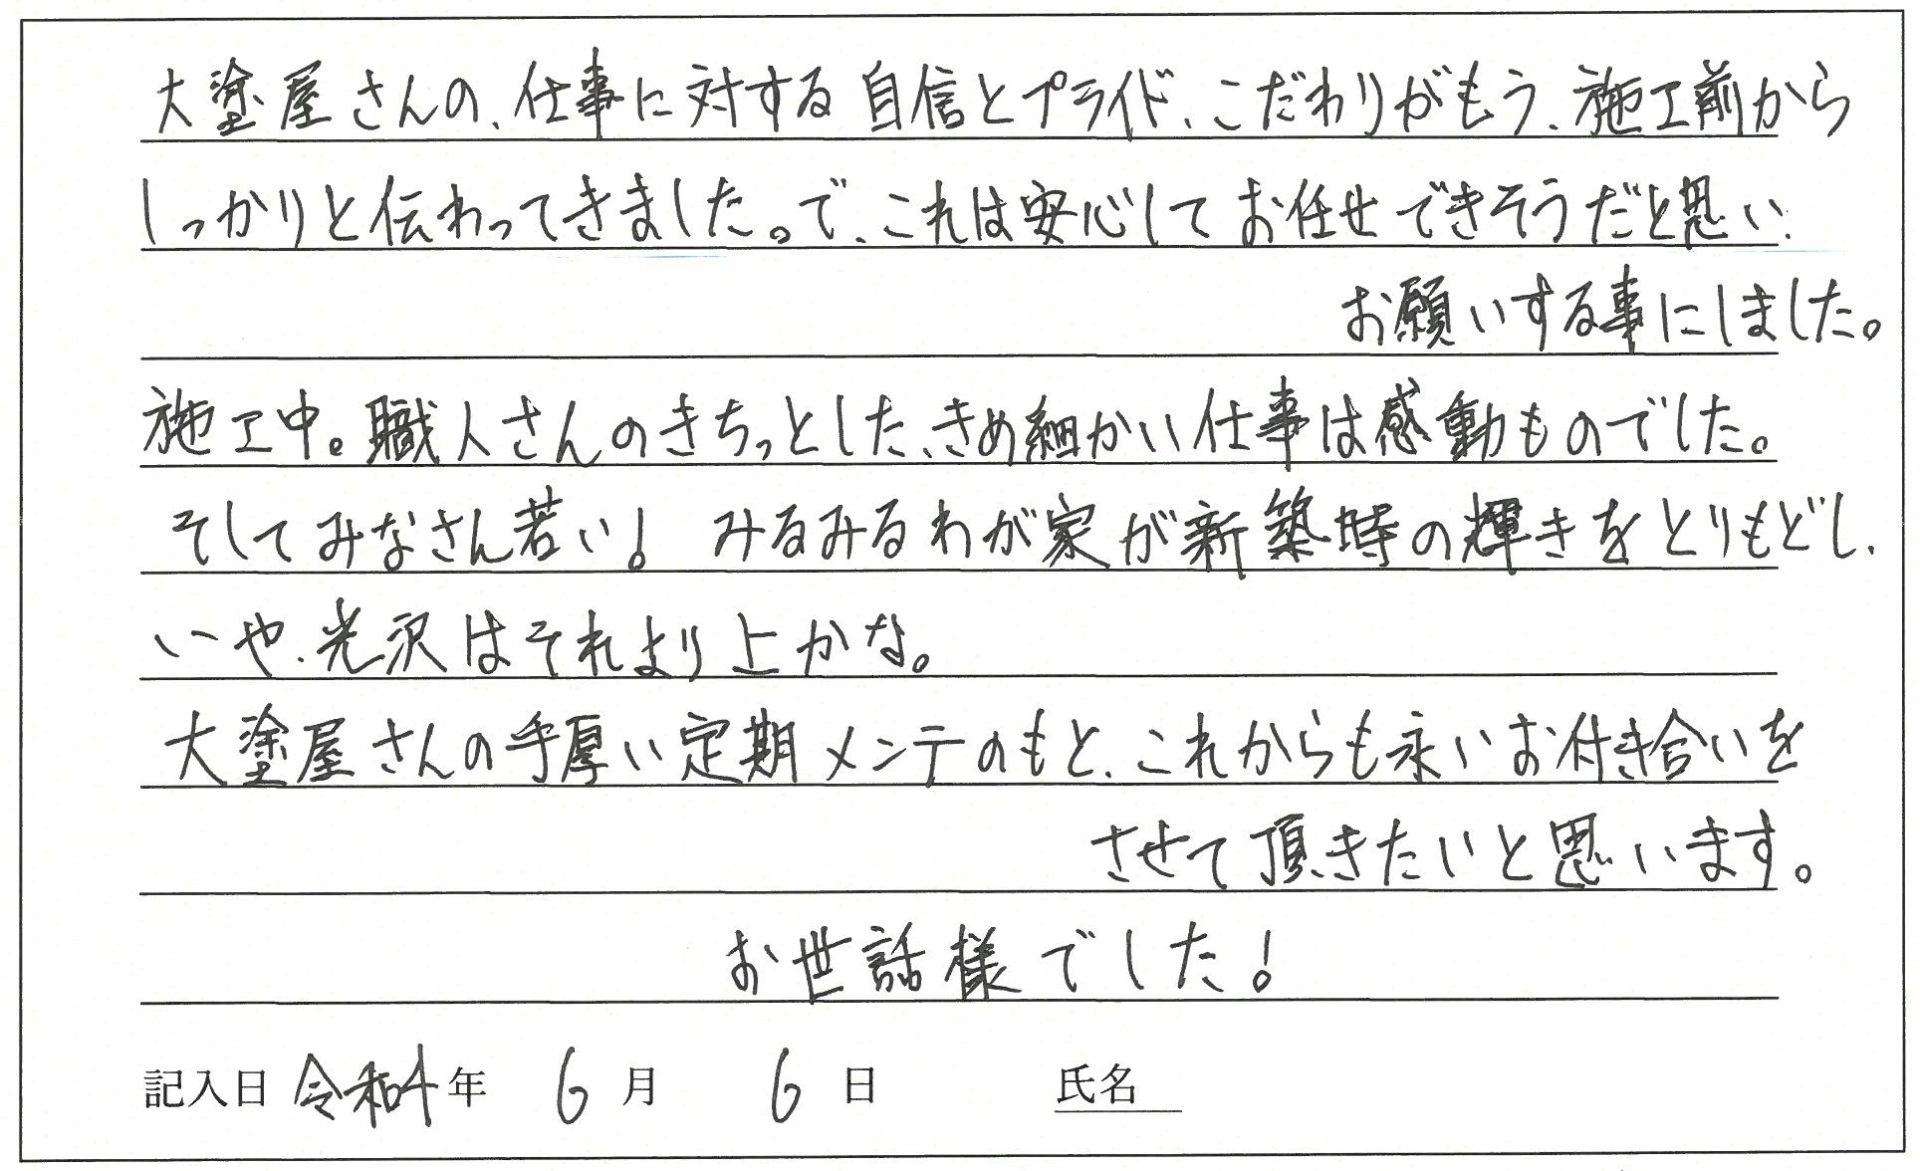 大塗屋さんの、仕事に対する自信とプライド、こだわりがもう、施工前から
しっかりと伝わってきました。で、これは安心してお任せできそうだと思い、
お願いする事にしました。
施工中。職人さんのきちっとした、きめ細かい仕事は感動ものでした。
そしてみなさん若い! みるみるわが家が新築時の輝きをとりもどし、
いや、光沢はそれより上かな。
大塗屋さんの手厚い定期メンテのもと、これからも永いお付き合いを
させて頂きたいと思います。
お世話様でした!
記入日 令和4年 6月 6日 氏名